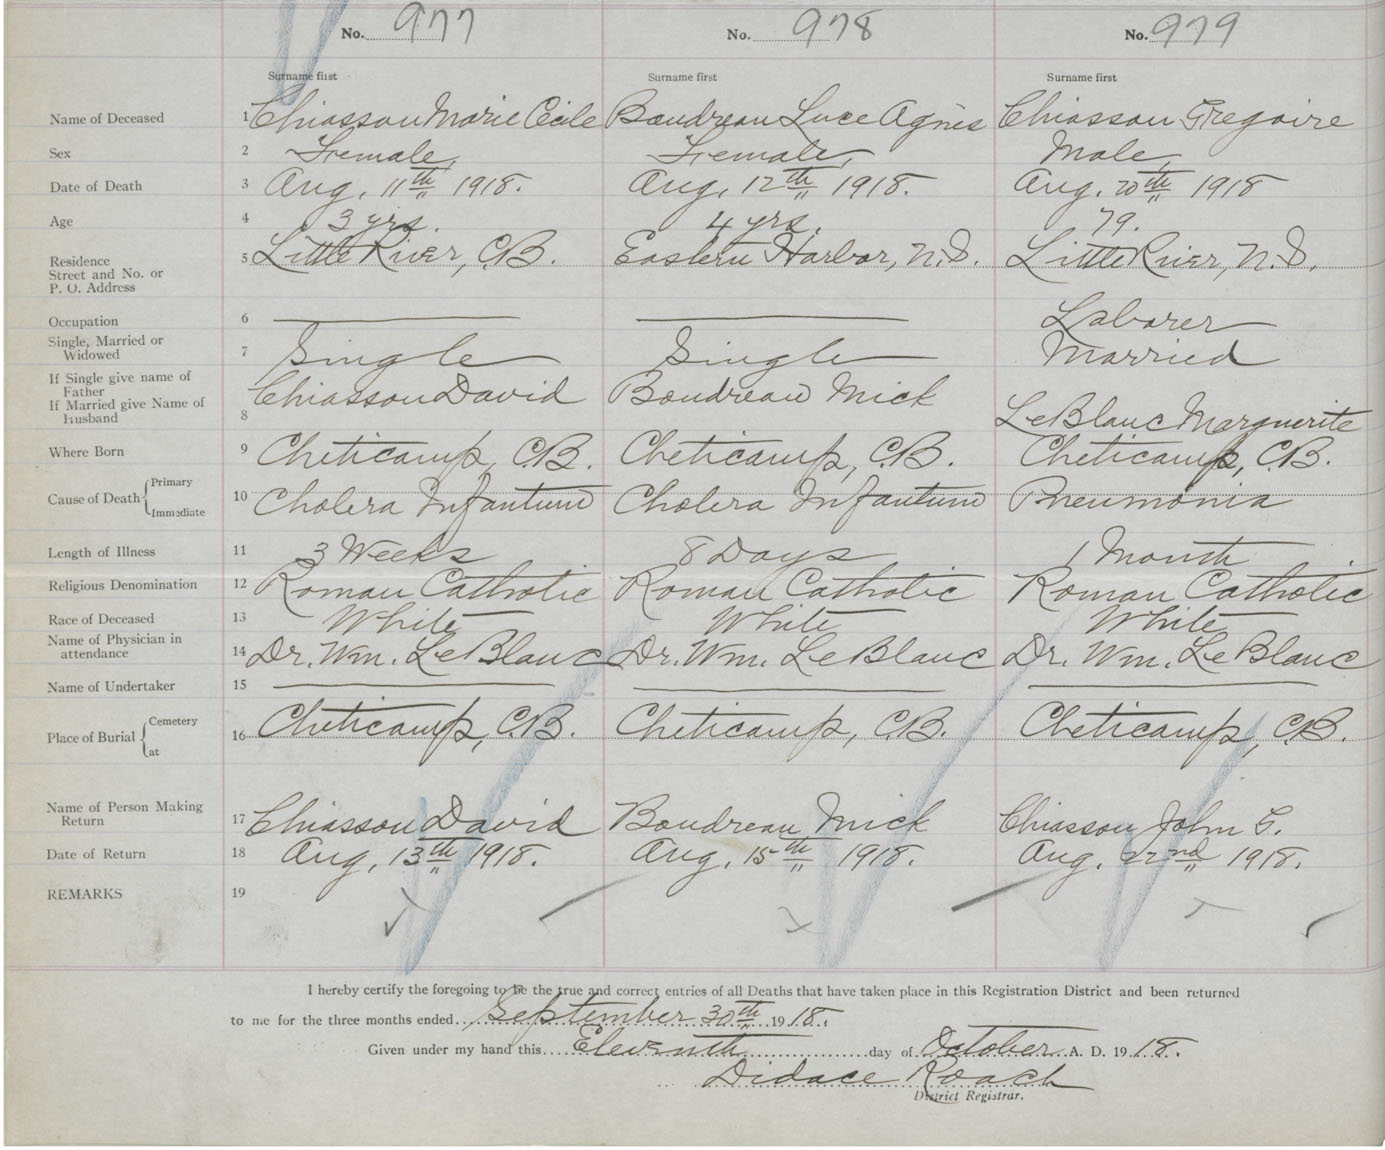 No. 977 No. 978 No. 979
Surname first Surname first Surname first
Name of Deceased 1 Chiasson Marie Cecile Boudreau Luce Agnes Chiasson Gregoire
Sex 2 Female, Female, Male,
Date of Death 3 Aug. 11th 1918. Aug. 12th 1918. Aug. 20th 1918
Age 4 3 yrs. 4 yrs. 79.
Residence
Street and No. or
P. O. Address 5 Little River, C.B. Eastern Harbor, N.S. Little River, N.S.
Occupation 6 Laborer
Single, Married or
Widowed 7 Single Single Married
If Single give name of
Father Chiasson David Boudreau Mick
If Married give Name of
Husband 8 LeBlanc Marguerite
Where Born 9 Cheticamp, C.B. Cheticamp, C.B. Cheticamp, C.B.
Cause of Death { Primary
Immediate 10 Cholera Infantum Cholera Infantum Pneumonia
Length of Illness 11 3 Weeks 8 Days 1 Month
Religious Denomination 12 Roman Catholic Roman Catholic Roman Catholic
Race of Deceased 13 White White White
Name of Physician in
attendance 14 Dr. Wm. LeBlanc Dr. Wm. LeBlanc Dr. Wm. LeBlanc
Name of Undertaker 15
Place of Burial { Cemetery
at 16 Cheticamp, C.B. Cheticamp, C.B. Cheticamp, C.B.
Name of Person Making
Return 17 Chiasson David Boudreau Mick Chiasson John G.
Date of Return 18 Aug. 13th 1918. Aug. 15th 1918. Aug. 22nd 1918.
REMARKS 19
I hereby certify the foregoing to be the true and correct entries of all Deaths that have taken place in this Registration District and been returned
to me for the three months ended September 30th 1918.
Given under my hand this Eleventh day of October A. D. 1918.
Didace Roach
District Registrar.